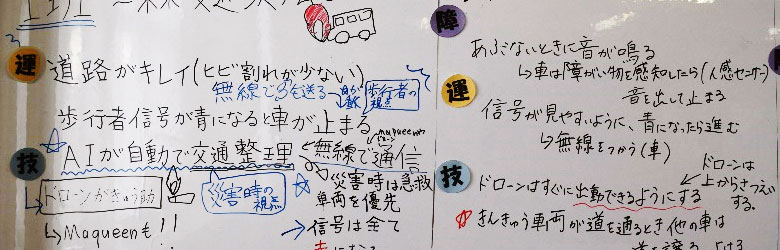 運
道路がキレイ(ヒビ割れが少ない)
無線で
を送る
歩行者の
視点
歩行者信号が青になると車が止まる
技
AIが自動で交通整理
無線で通信
ドローンがきゅう助
災害時の
視点
災害時は急救
車両を優先
↳Maqueenも!!
→信号は全て
障
あぶないときに音が鳴る
↳車は障がい物を感知したら(人感センサー)
音を出して止まる
運
信号が見やすいように、青になったら進む
↳無線をつかう(車)
技
ドローンは
上からきゅうえい
する。
ドローンはすぐに出動できるようにする
きんきゅう車両が道を通るとき他の車は